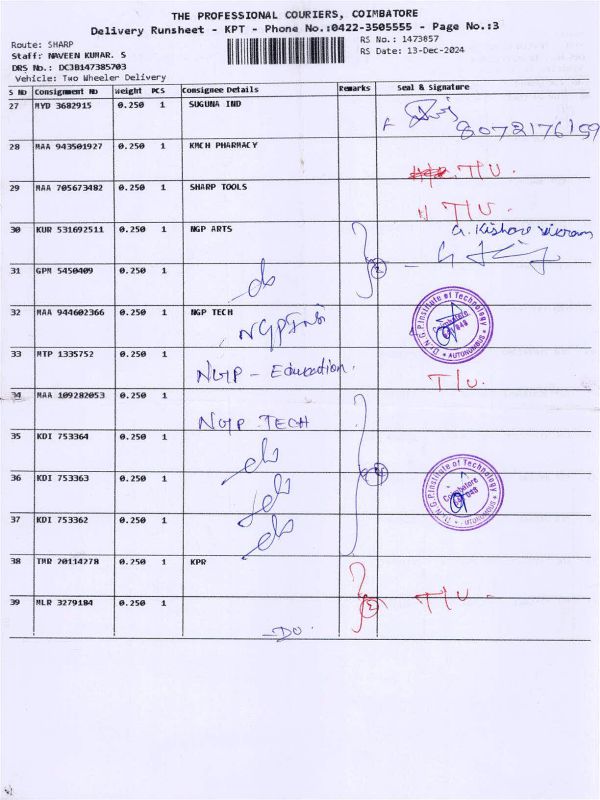 THE PROFESSIONAL COURIERS, COIMBATORE
Delivery Runsheet - KPT - Phone No.:0422-3505555 - Page No.:3
Route: SHARP
RS No.: 1473857
Staff: NAVEEN KUMAR. S
RS Date: 13-Dec-2024
DRS No.: DCJB147385703
Vehicle: Two Wheeler Delivery
S No Consignment No Weight PCS Consignee Details Remarks Seal & Signature
27 MYD 3682915 0.250 1 SUGUNA IND
8072176159
28 MAA 943501927 0.250 1 KMCH PHARMACY
T/U.
29 MAA 705673482 0.250 1 SHARP TOOLS
T/U.
30 KUR 531692511 0.250 1 NGP ARTS
G. Kishore vikram
31 GPM 5450409 0.250 1
2
do
32 MAA 944602366 0.250 1 NGP TECH
Dr. N.G.P. Institute of Technology
Coimbatore
641 048
* AUTONOMOUS *
33 MTP 1335752 0.250 1
NGP - Education.
T/U.
34 MAA 109282053 0.250 1
NGP TECH
35 KDI 753364 0.250 1
do
36 KDI 753363 0.250 1
4
do
Dr. N.G.P. Institute of Technology
Coimbatore
641 048
* AUTONOMOUS *
37 KDI 753362 0.250 1
do
38 TMR 20114278 0.250 1 KPR
39 MLR 3279184 0.250 1
2
T/U.
-DO.